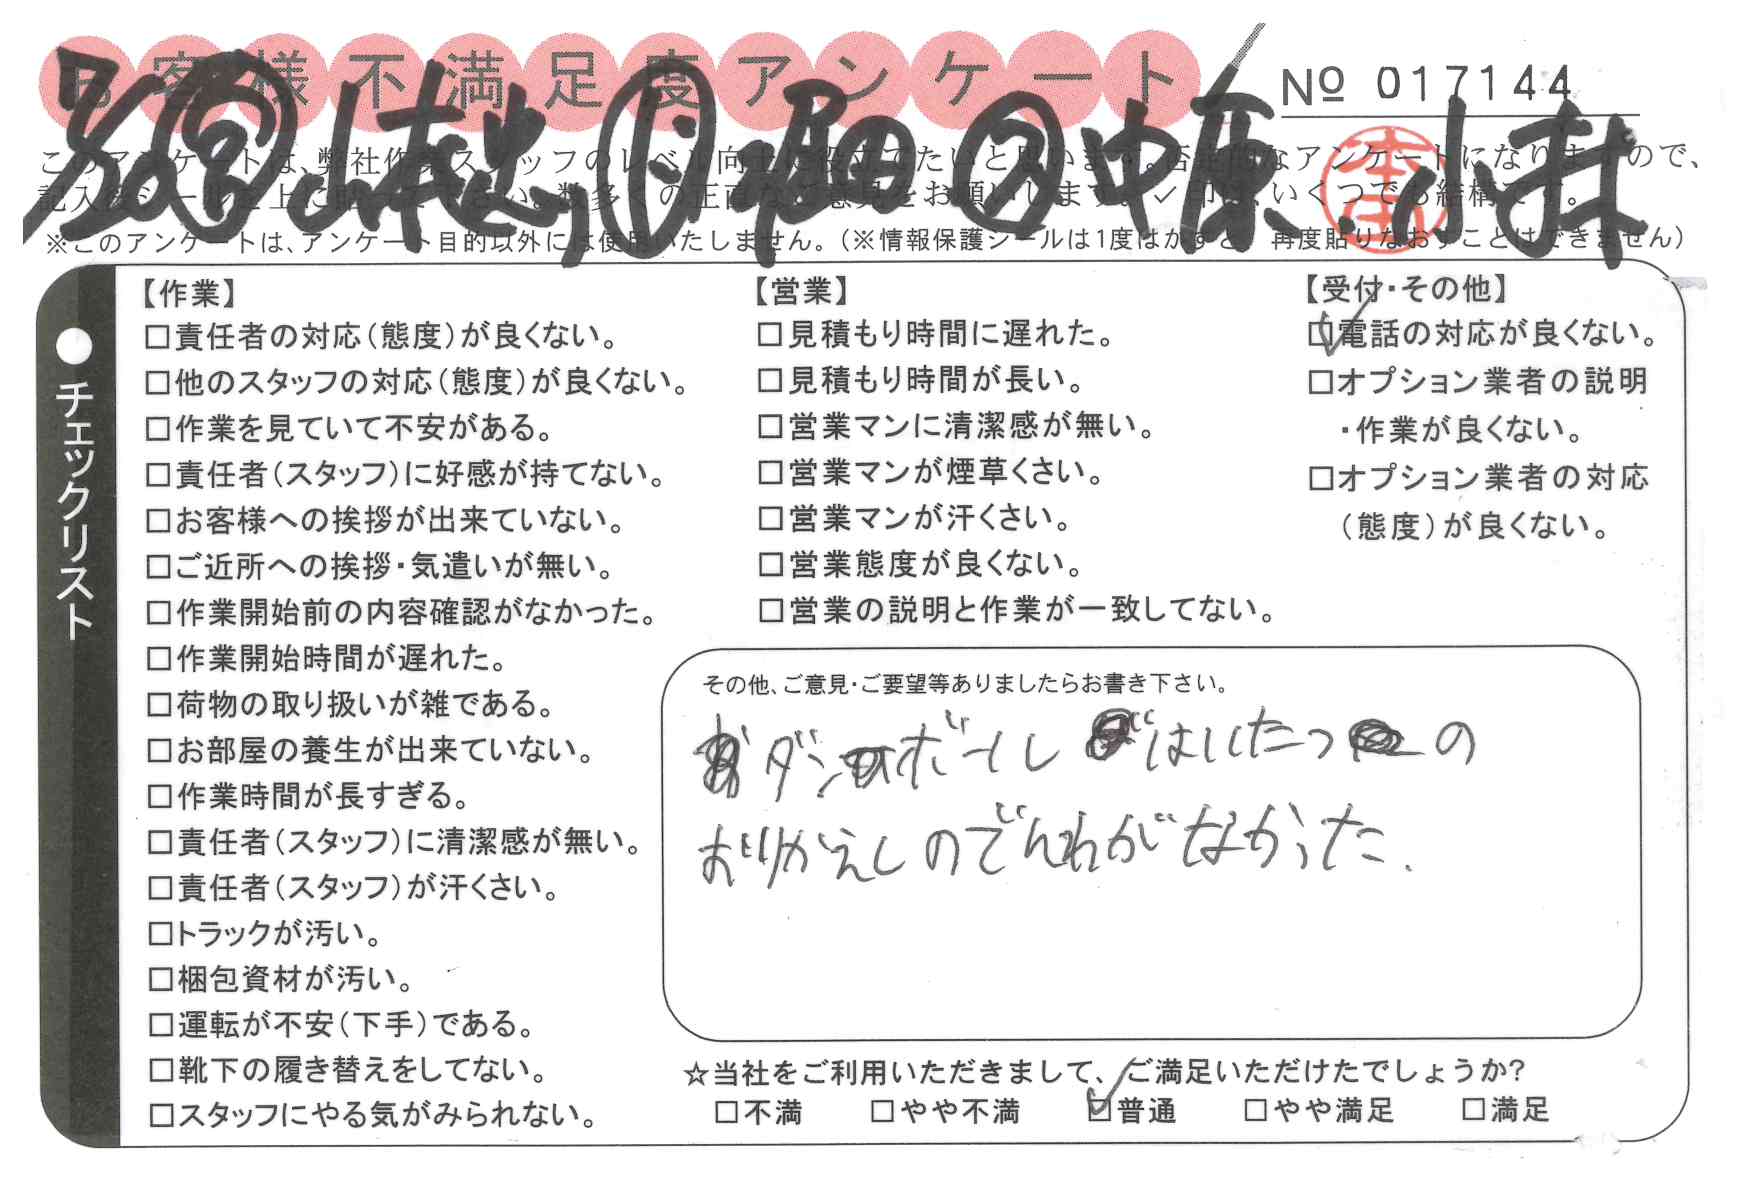 お客様不満足度アンケート
No 017144
このアンケートは、弊社作業スタッフのレベル向上に役立てたいと思います。否定的なアンケートになりますので、
記入後シールを上に貼って下さい。数多くの正直なご意見をお願いします。✓印は、いくつでも結構です。
※このアンケートは、アンケート目的以外には使用いたしません。(※情報保護シールは1度はがすと、再度貼りなおすことはできません)
山本 堀田 中原 小林
本田
●チェックリスト
【作業】
□責任者の対応(態度)が良くない。
□他のスタッフの対応(態度)が良くない。
□作業を見ていて不安がある。
□責任者(スタッフ)に好感が持てない。
□お客様への挨拶が出来ていない。
□ご近所への挨拶・気遣いが無い。
□作業開始前の内容確認がなかった。
□作業開始時間が遅れた。
□荷物の取り扱いが雑である。
□お部屋の養生が出来ていない。
□作業時間が長すぎる。
□責任者(スタッフ)に清潔感が無い。
□責任者(スタッフ)が汗くさい。
□トラックが汚い。
□梱包資材が汚い。
□運転が不安(下手)である。
□靴下の履き替えをしてない。
□スタッフにやる気がみられない。
【営業】
□見積もり時間に遅れた。
□見積もり時間が長い。
□営業マンに清潔感が無い。
□営業マンが煙草くさい。
□営業マンが汗くさい。
□営業態度が良くない。
□営業の説明と作業が一致してない。
【受付・その他】
☑電話の対応が良くない。
□オプション業者の説明
・作業が良くない。
□オプション業者の対応
(態度)が良くない。
その他、ご意見・ご要望等ありましたらお書き下さい。
ダンボール はいたつの
おりかえしのでんわがなかった.
☆当社をご利用いただきまして、ご満足いただけたでしょうか?
□不満 □やや不満 ☑普通 □やや満足 □満足